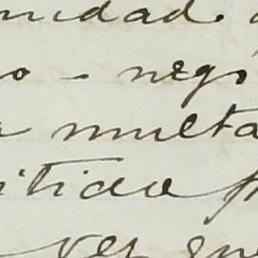 nidad.
o - nego
a multa
itida p
ver que